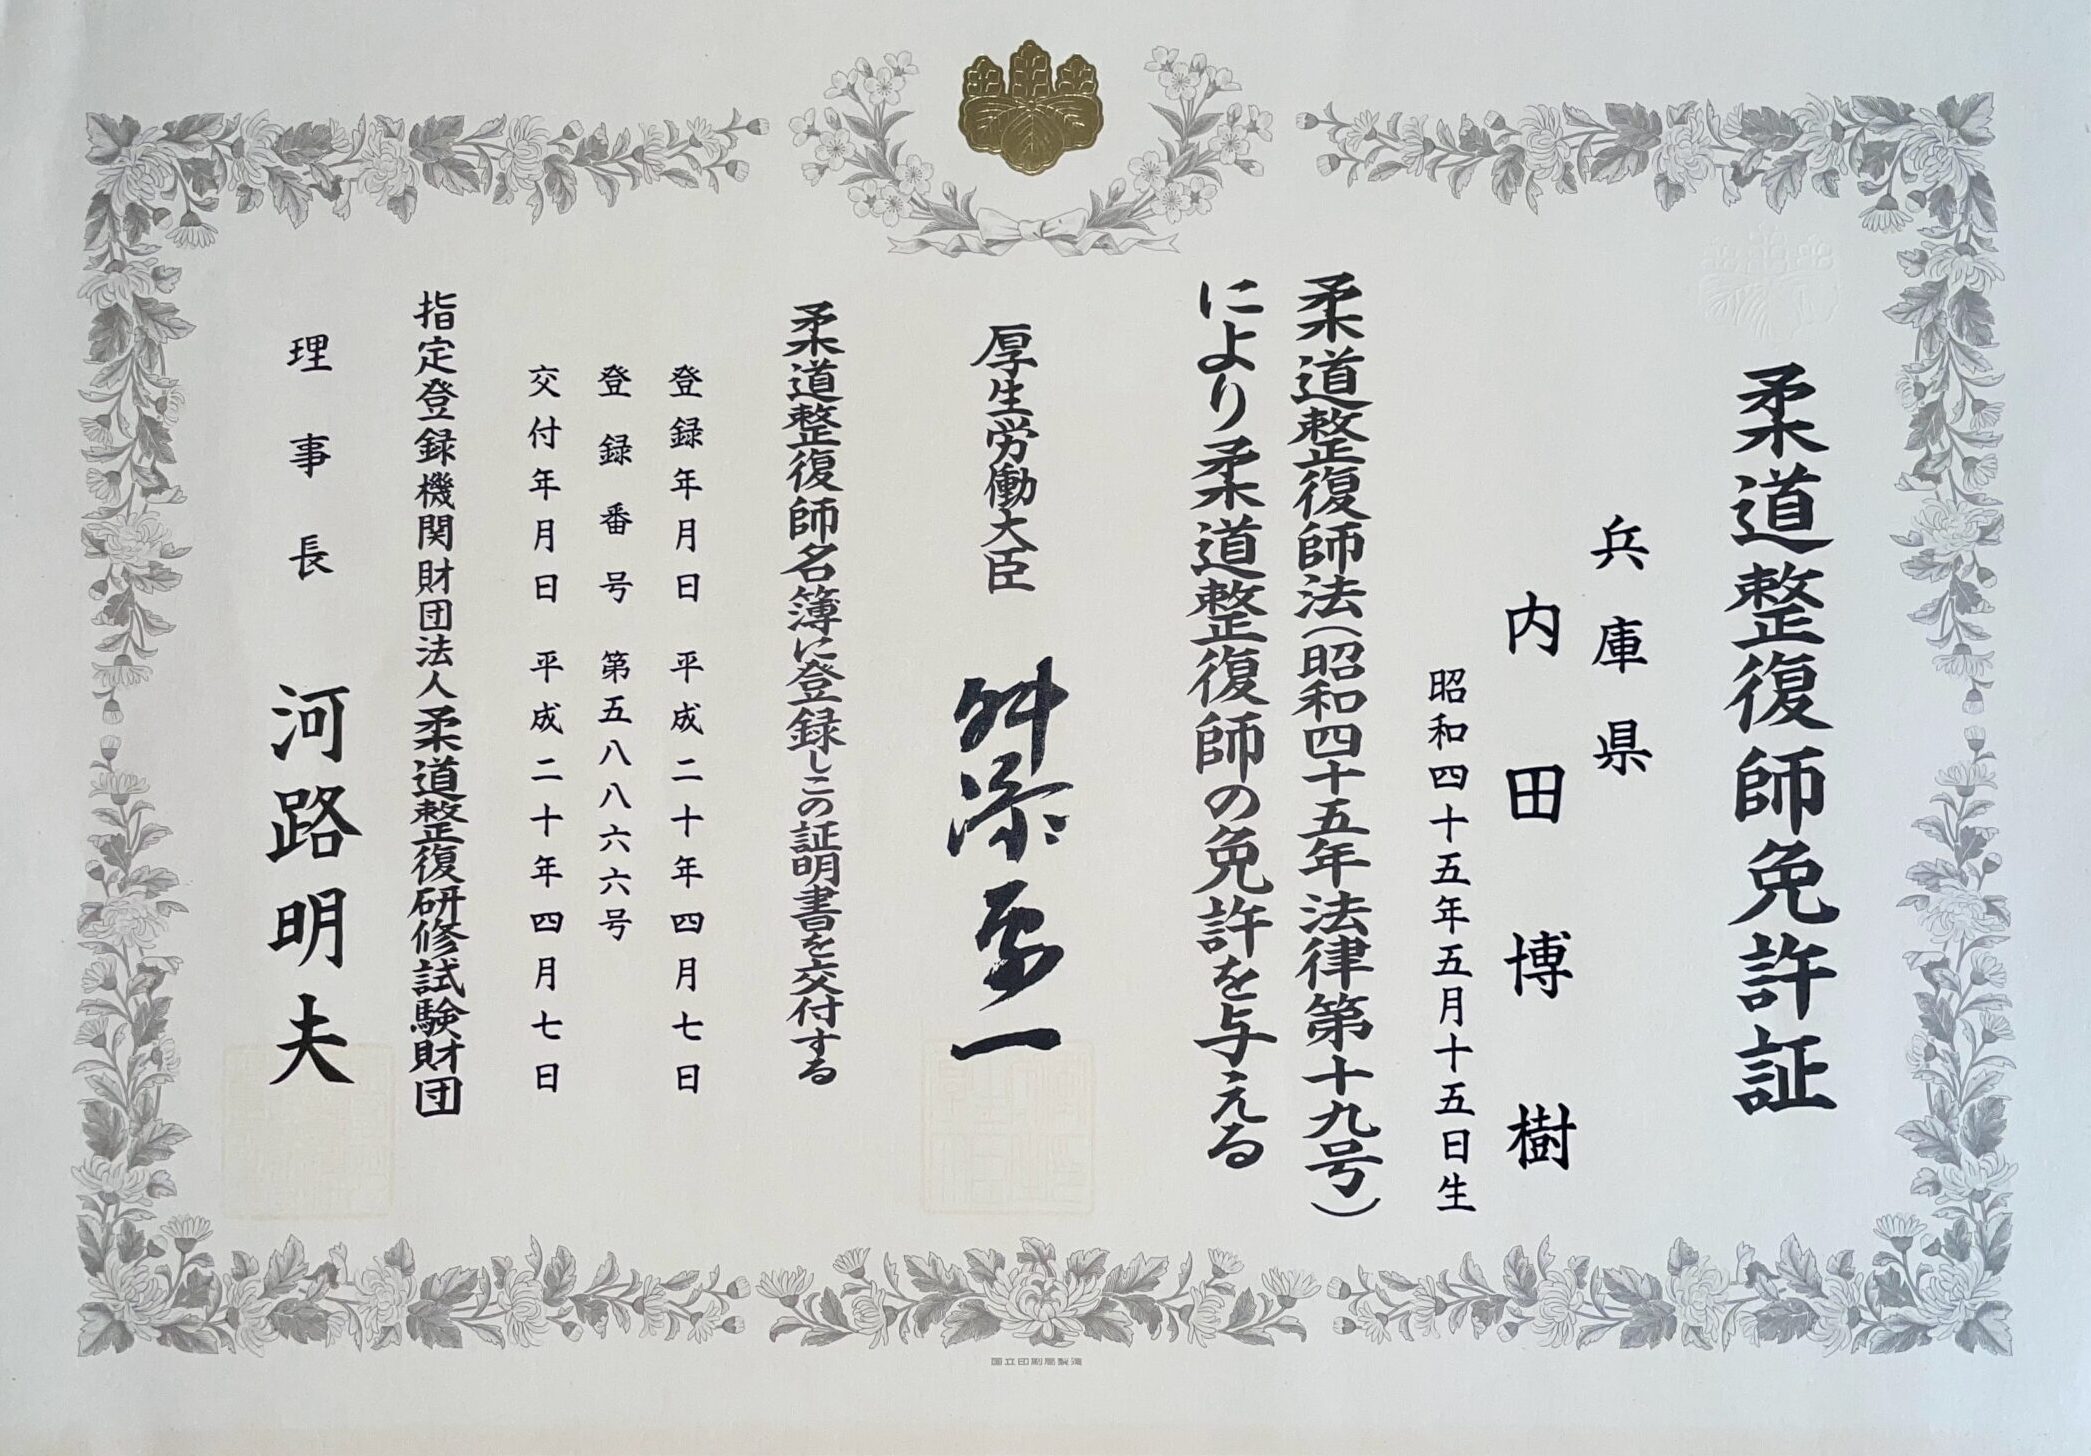 柔道整復師免許証
兵庫県
内田博樹
昭和四十五年五月十五日生
柔道整復師法(昭和四十五年法律第十九号)
により柔道整復師の免許を与える
厚生労働大臣 舛添要一
柔道整復師名簿に登録しこの証明書を交付する
登録年月日 平成二十年四月七日
登録番号 第五八八六六号
交付年月日 平成二十年四月七日
指定登録機関財団法人柔道整復研修試験財団
理事長 河路明夫
国立印刷局製造